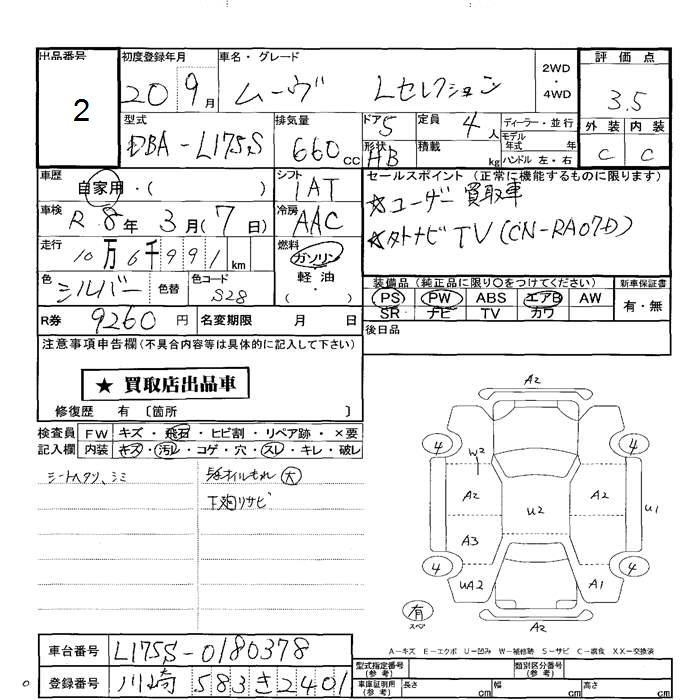 出品番号 初度登録年月 車名・グレード 2WD・4WD 評価点
2 20 9月 ムーヴ Lセレクション 3.5
型式 排気量 ドア 定員 ディーラー・並行 外装 内装
DBA-L175S 660cc 5 4人 モデル年式 年 C C
形状 HB 積載 kg ハンドル 左・右
車歴 シフト セールスポイント(正常に機能するものに限ります)
自家用・( ) IAT ☆ユーザー買取車
車検 R8年3月(7日) 冷房 AAC ☆外ナビTV(CN-RA07D)
走行 10万6千991km 燃料 ガソリン・軽油・( )
色 シルバー 色替 色コード S28
装備品(純正品に限り○をつけてください) 新車保証書
PS PW ABS エアB AW 有・無
SR ナビ TV カワ
R券 9260円 名変期限 月 日 後日品
注意事項申告欄(不具合内容等は具体的に記入して下さい)
★買取店出品車
修復歴 有〔箇所 〕
検査員 FW キズ・飛石・ヒビ割・リペア跡・×要
記入欄 内装 キズ・汚レ・コゲ・穴・スレ・キレ・破レ
シートヘタリ、シミ オイルもれ 大
下廻リサビ
A2
4 4
W2
A2 U2 A2 U1
A3
4 4
UA2 A1
有 スペア A2
A-キズ E-エクボ U-凹み W-補修跡 S-サビ C-腐食 XX-交換済
車台番号 L175S-0180378
型式指定番号(参考) 類別区分番号(参考)
登録番号 川崎583き2401
車庫証明用(参考) 長さ cm 幅 cm 高さ cm